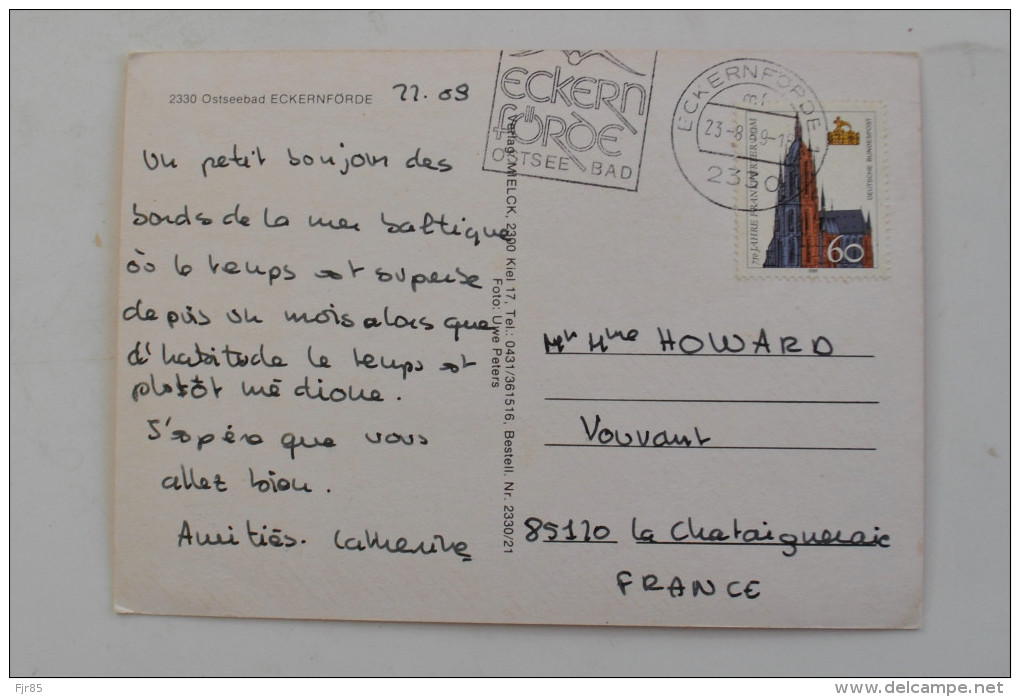 2330 Ostseebad ECKERNFÖRDE
22.09
Un petit bonjour des
bords de la mer baltique
où le temps est superbe
depuis un mois alors que
d'habitude le temps est
plutôt médiocre.
J'espère que vous
allez bien.
Amitiés. Catherine
Verlag: MIELCK, 2300 Kiel 17, Tel.: 0431/361516, Bestell. Nr. 2330/21
Foto: Uwe Peters
ECKERN
FÖRDE
OSTSEE BAD
ECKERNFÖRDE
23-8
750 JAHRE FRANKFURTER DOM
DEUTSCHE BUNDESPOST
60
Mr Mme HOWARD
Vouvant
85120 la Chataigneraie
FRANCE
Fjr85
www.delcampe.net